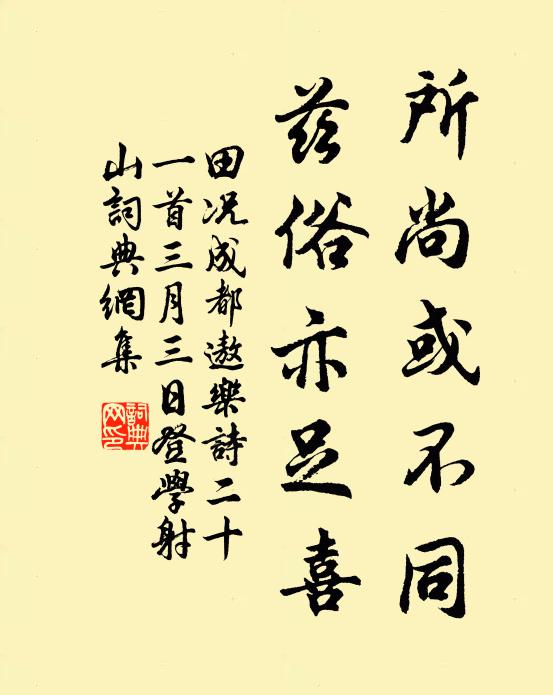 所尚或不同
茲俗亦足喜
田況成都遨樂詩二十
一首三月三日登學射
山詞典網集
詞典
网印